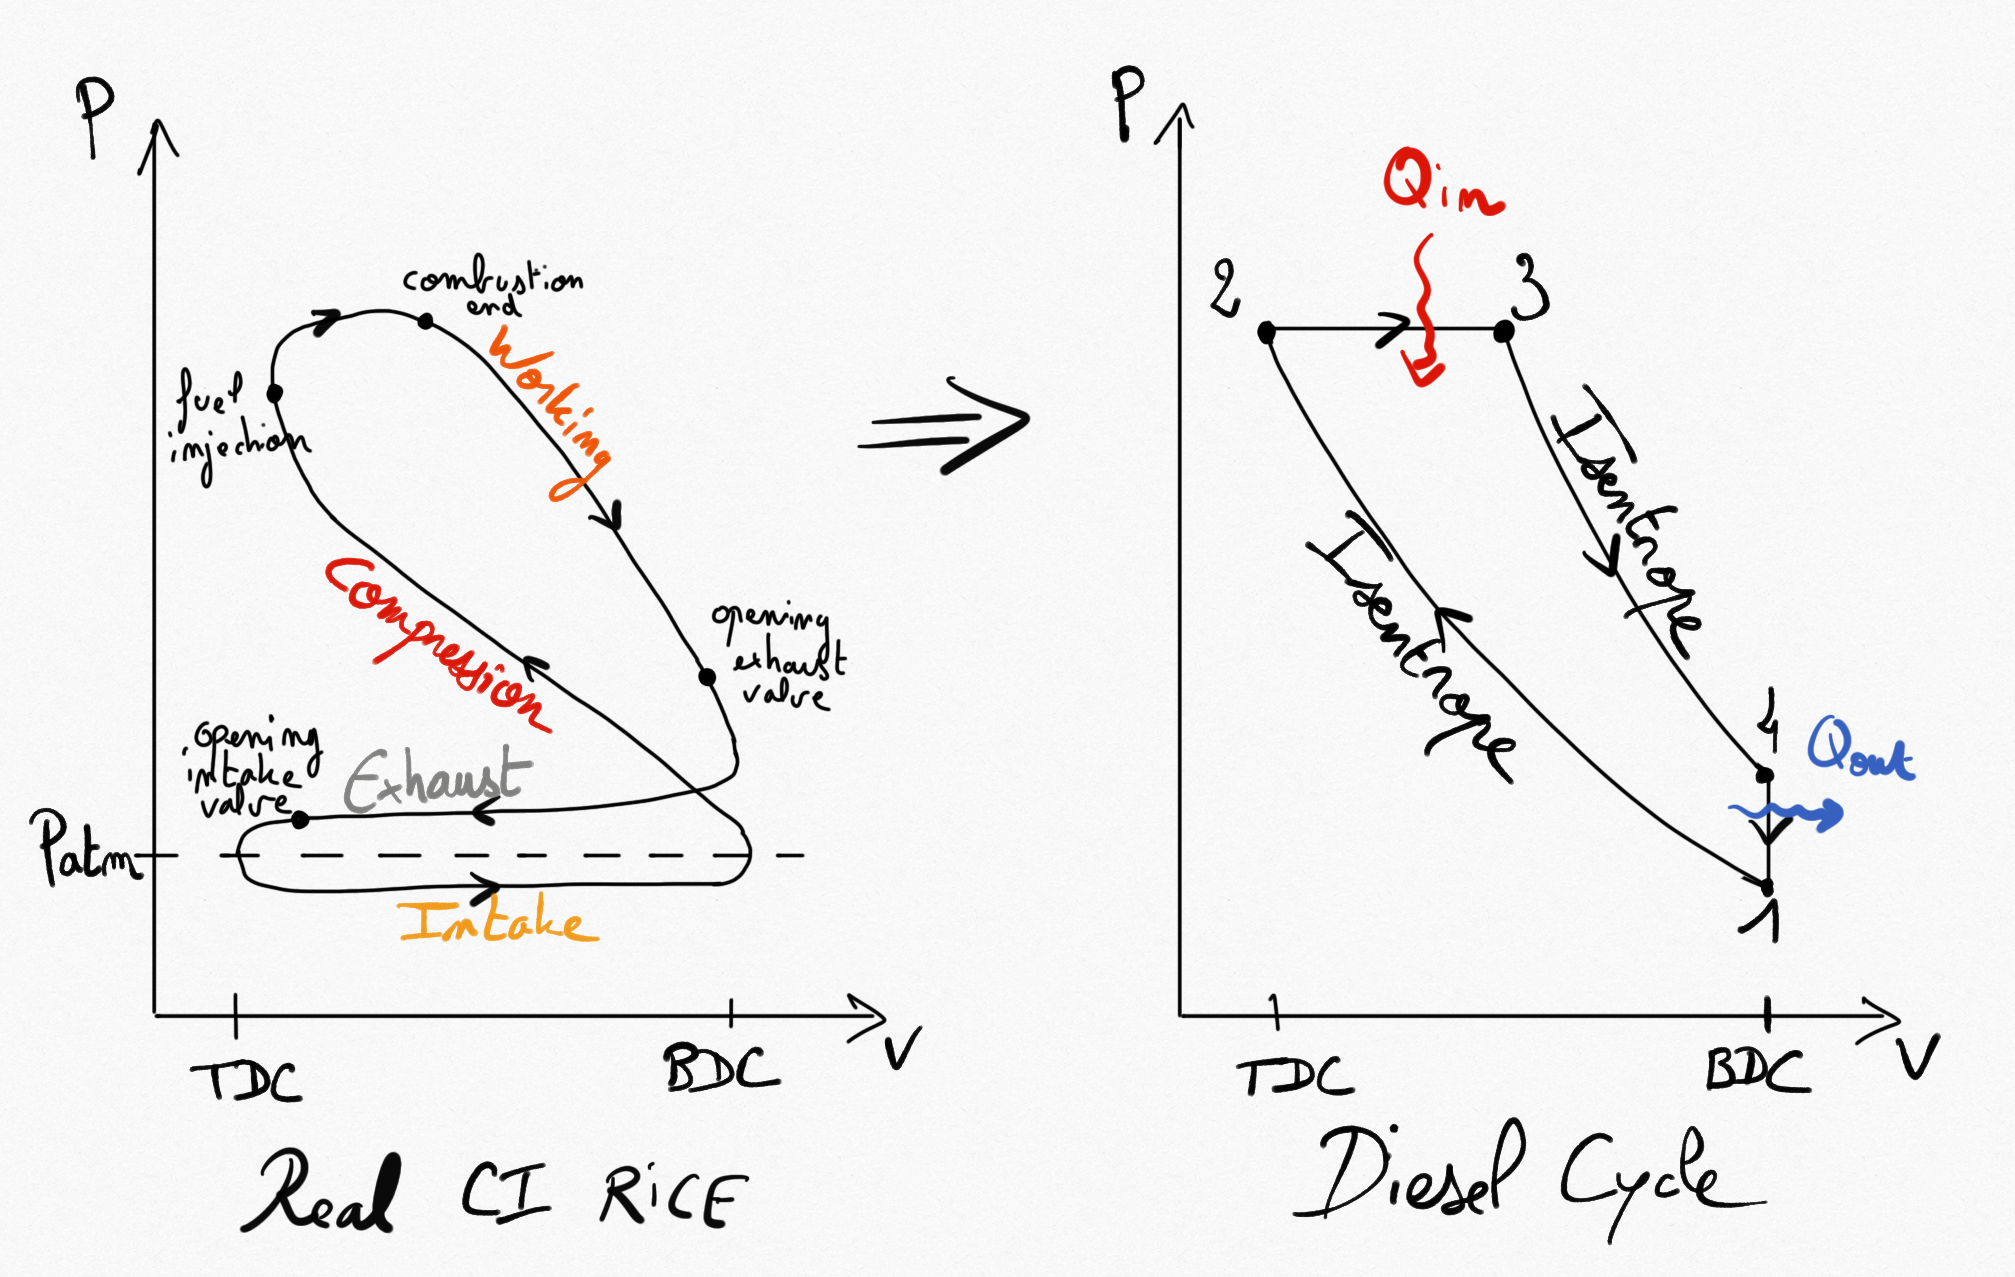 P
combustion
end
Working
fuel
injection
Compression
opening
exhaust
valve
opening
intake
valve
Exhaust
Patm
Intake
TDC
BDC
V
Real CI RiCE
P
Qin
2
3
Isentrope
Isentrope
4
Qout
1
TDC
BDC
V
Diesel Cycle